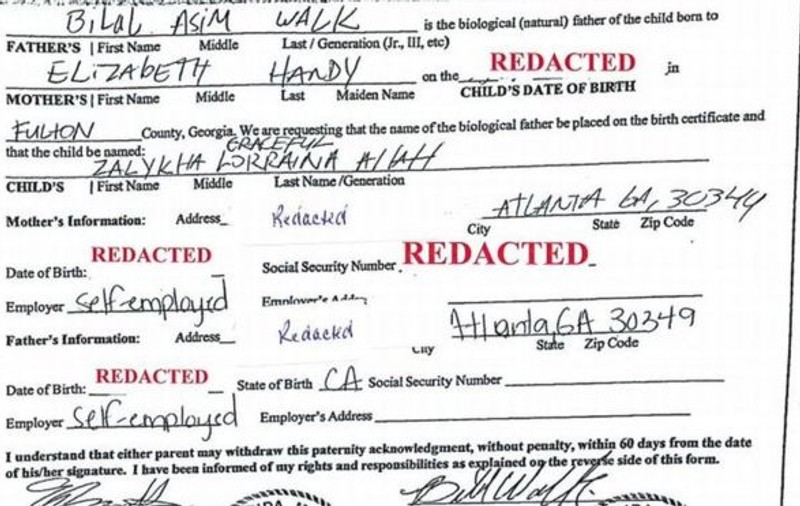 BiLAL ASiM WALK is the biological (natural) father of the child born to
FATHER'S | First Name Middle Last / Generation (Jr., III, etc)
ELiZABETH HANDY on the REDACTED in
MOTHER'S | First Name Middle Last Maiden Name CHILD'S DATE OF BIRTH
FULTON County, Georgia. We are requesting that the name of the biological father be placed on the birth certificate and
that the child be named: GRACEFUL
ZALYKHA LORRAINA AllAH
CHILD'S | First Name Middle Last Name /Generation
Mother's Information: Address Redacted ATLANTA GA, 30344
City State Zip Code
Date of Birth: REDACTED Social Security Number REDACTED
Employer self-employed Employer's Addr
Father's Information: Address Redacted Atlanta, GA 30349
City State Zip Code
Date of Birth: REDACTED State of Birth CA Social Security Number
Employer self-employed Employer's Address
I understand that either parent may withdraw this paternity acknowledgment, without penalty, within 60 days from the date
of his/her signature. I have been informed of my rights and responsibilities as explained on the reverse side of this form.